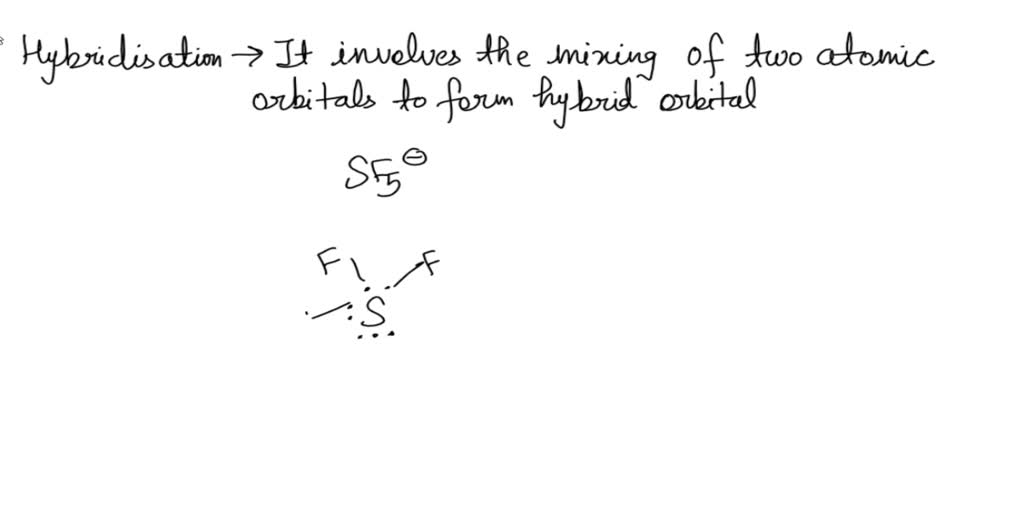 Hybridisation → It involves the mixing of two atomic
orbitals to form hybrid orbital
SF₅⊖
F F
S